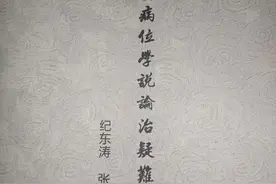 病位學説論治疑難
纪东涛 张